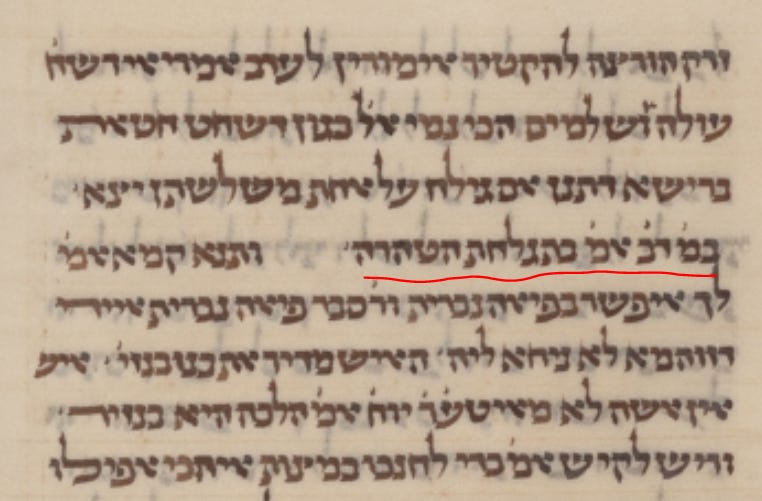 וזרק הורצה להקטיר אימורין לערב אמרי אי דשח'
עולה ושלמים הכי נמי אל' כגון דשחט חטאת
ברישא דתנן אם גילח על אחת משלשתן יצא'
במ' דב' אמ' בתגלחת הטהרה' ותנא קמא אמ'
לך איפשר בפיאה נכרית ור' סבר פיאה נכרית איידי
דזוהמא לא ניחא ליה' האיש מדיר את בנו בנזי' איש
אין אשה לא מאי טע' ר' יוח' אמ' הלכה היא בנזיר'
וריש לקיש אמ' כדי לחנכו במצות אי הכי אפילו